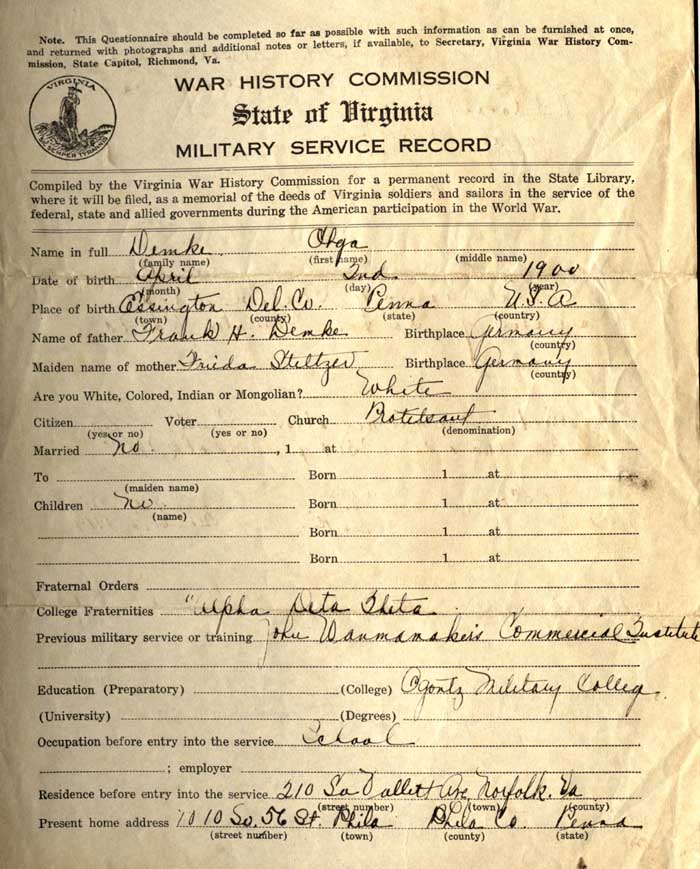 Note. This Questionnaire should be completed so far as possible with such information as can be furnished at once,
and returned with photographs and additional notes or letters, if available, to Secretary, Virginia War History Com-
mission, State Capitol, Richmond, Va.
VIRGINIA
SIC SEMPER TYRANNIS
WAR HISTORY COMMISSION
State of Virginia
MILITARY SERVICE RECORD
Compiled by the Virginia War History Commission for a permanent record in the State Library,
where it will be filed, as a memorial of the deeds of Virginia soldiers and sailors in the service of the
federal, state and allied governments during the American participation in the World War.
Name in full Demke Olga
(family name) (first name) (middle name)
Date of birth April 2nd 1900
(month) (day) (year)
Place of birth Essington Del. Co. Penna U.S.A
(town) (county) (state) (country)
Name of father Frank H. Demke Birthplace Germany
(country)
Maiden name of mother Frieda Steltzer Birthplace Germany
(country)
Are you White, Colored, Indian or Mongolian? White
Citizen Voter Church Protetsant
(yes or no) (yes or no) (denomination)
Married no , 1 at
To Born 1 at
(maiden name)
Children no Born 1 at
(name)
Born 1 at
Born 1 at
Fraternal Orders
College Fraternities "Alpha Deta Theta
Previous military service or training John Wanmamakers Commercial Institute
Education (Preparatory) (College) Ogontz Military College
(University) (Degrees)
Occupation before entry into the service School
; employer
Residence before entry into the service 210 So Ave Norfolk. Va
(street number) (town) (county)
Present home address 1010 So. 56 St. Phila Phila Co. Penna
(street number) (town) (county) (state)